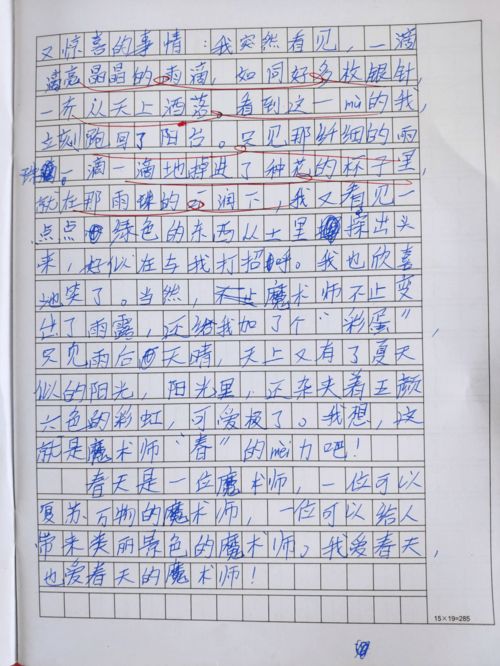 又惊喜的事情：我突然看见，一滴
滴亮晶晶的雨滴，如同好多枚银针，
一齐从天上洒落。看到这一mù的我，
立刻跑回了阳台。只见那纤细的雨
珠，一滴一滴地掉进了种花的杯子里，
就在那雨珠的一润下，我又看见一
点点绿色的东西从土里探出头
来，好似在与我打招呼。我也欣喜
地笑了。当然，魔术师不止变
出了雨露，还给我加了个“彩蛋”，
只见雨后天晴，天上又有了夏天
似的阳光，阳光里，还杂夹着五颜
六色的彩虹，可爱极了。我想，这
就是魔术师“春”的mèi力吧！
春天是一位魔术师，一位可以
复苏万物的魔术师，一位可以给人
带来美丽景色的魔术师。我爱春天，
也爱春天的魔术师！
15×19=285